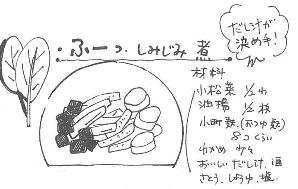 だし汁が
決め手!
・ふーっ しみじみ 煮
材料
小松菜 1/2わ
油揚 1/2枚
小町麩(おつゆ麩)
8コくらい
わかめ 少々
おいしいだし汁、酒
さとう、しょうゆ、塩